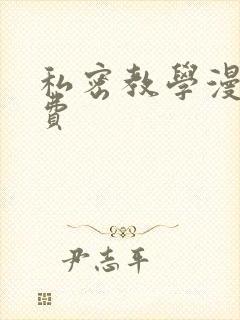 私密教學漫
費
尹志平